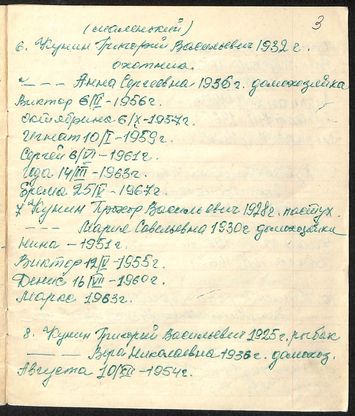 3
(смоленский)
6. Кунин Григорий Васильевич 1932 г.
охотник.
— — — Анна Сергеевна 1936 г. домохозяйка
Виктор 6/II - 1956 г.
Октябрина 6/X - 1957 г.
Игнат 10/I - 1959 г.
Сергей 6/VI - 1961 г.
Ида 14/III - 1963 г.
Ерема 25/IV - 1967 г.
7. Кунин Прохор Васильевич 1928 г. пастух.
— — — Мария Савельевна 1930 г. домохозяйка
Нина - 1951 г.
Виктор 12/V - 1955 г.
Денис 16/VII - 1960 г.
Марко 1963 г.
8. Кунин Григорий Васильевич 1925 г. рыбак
— — Вера Николаевна 1936 г. домохоз.
Августа 20/XII - 1954 г.